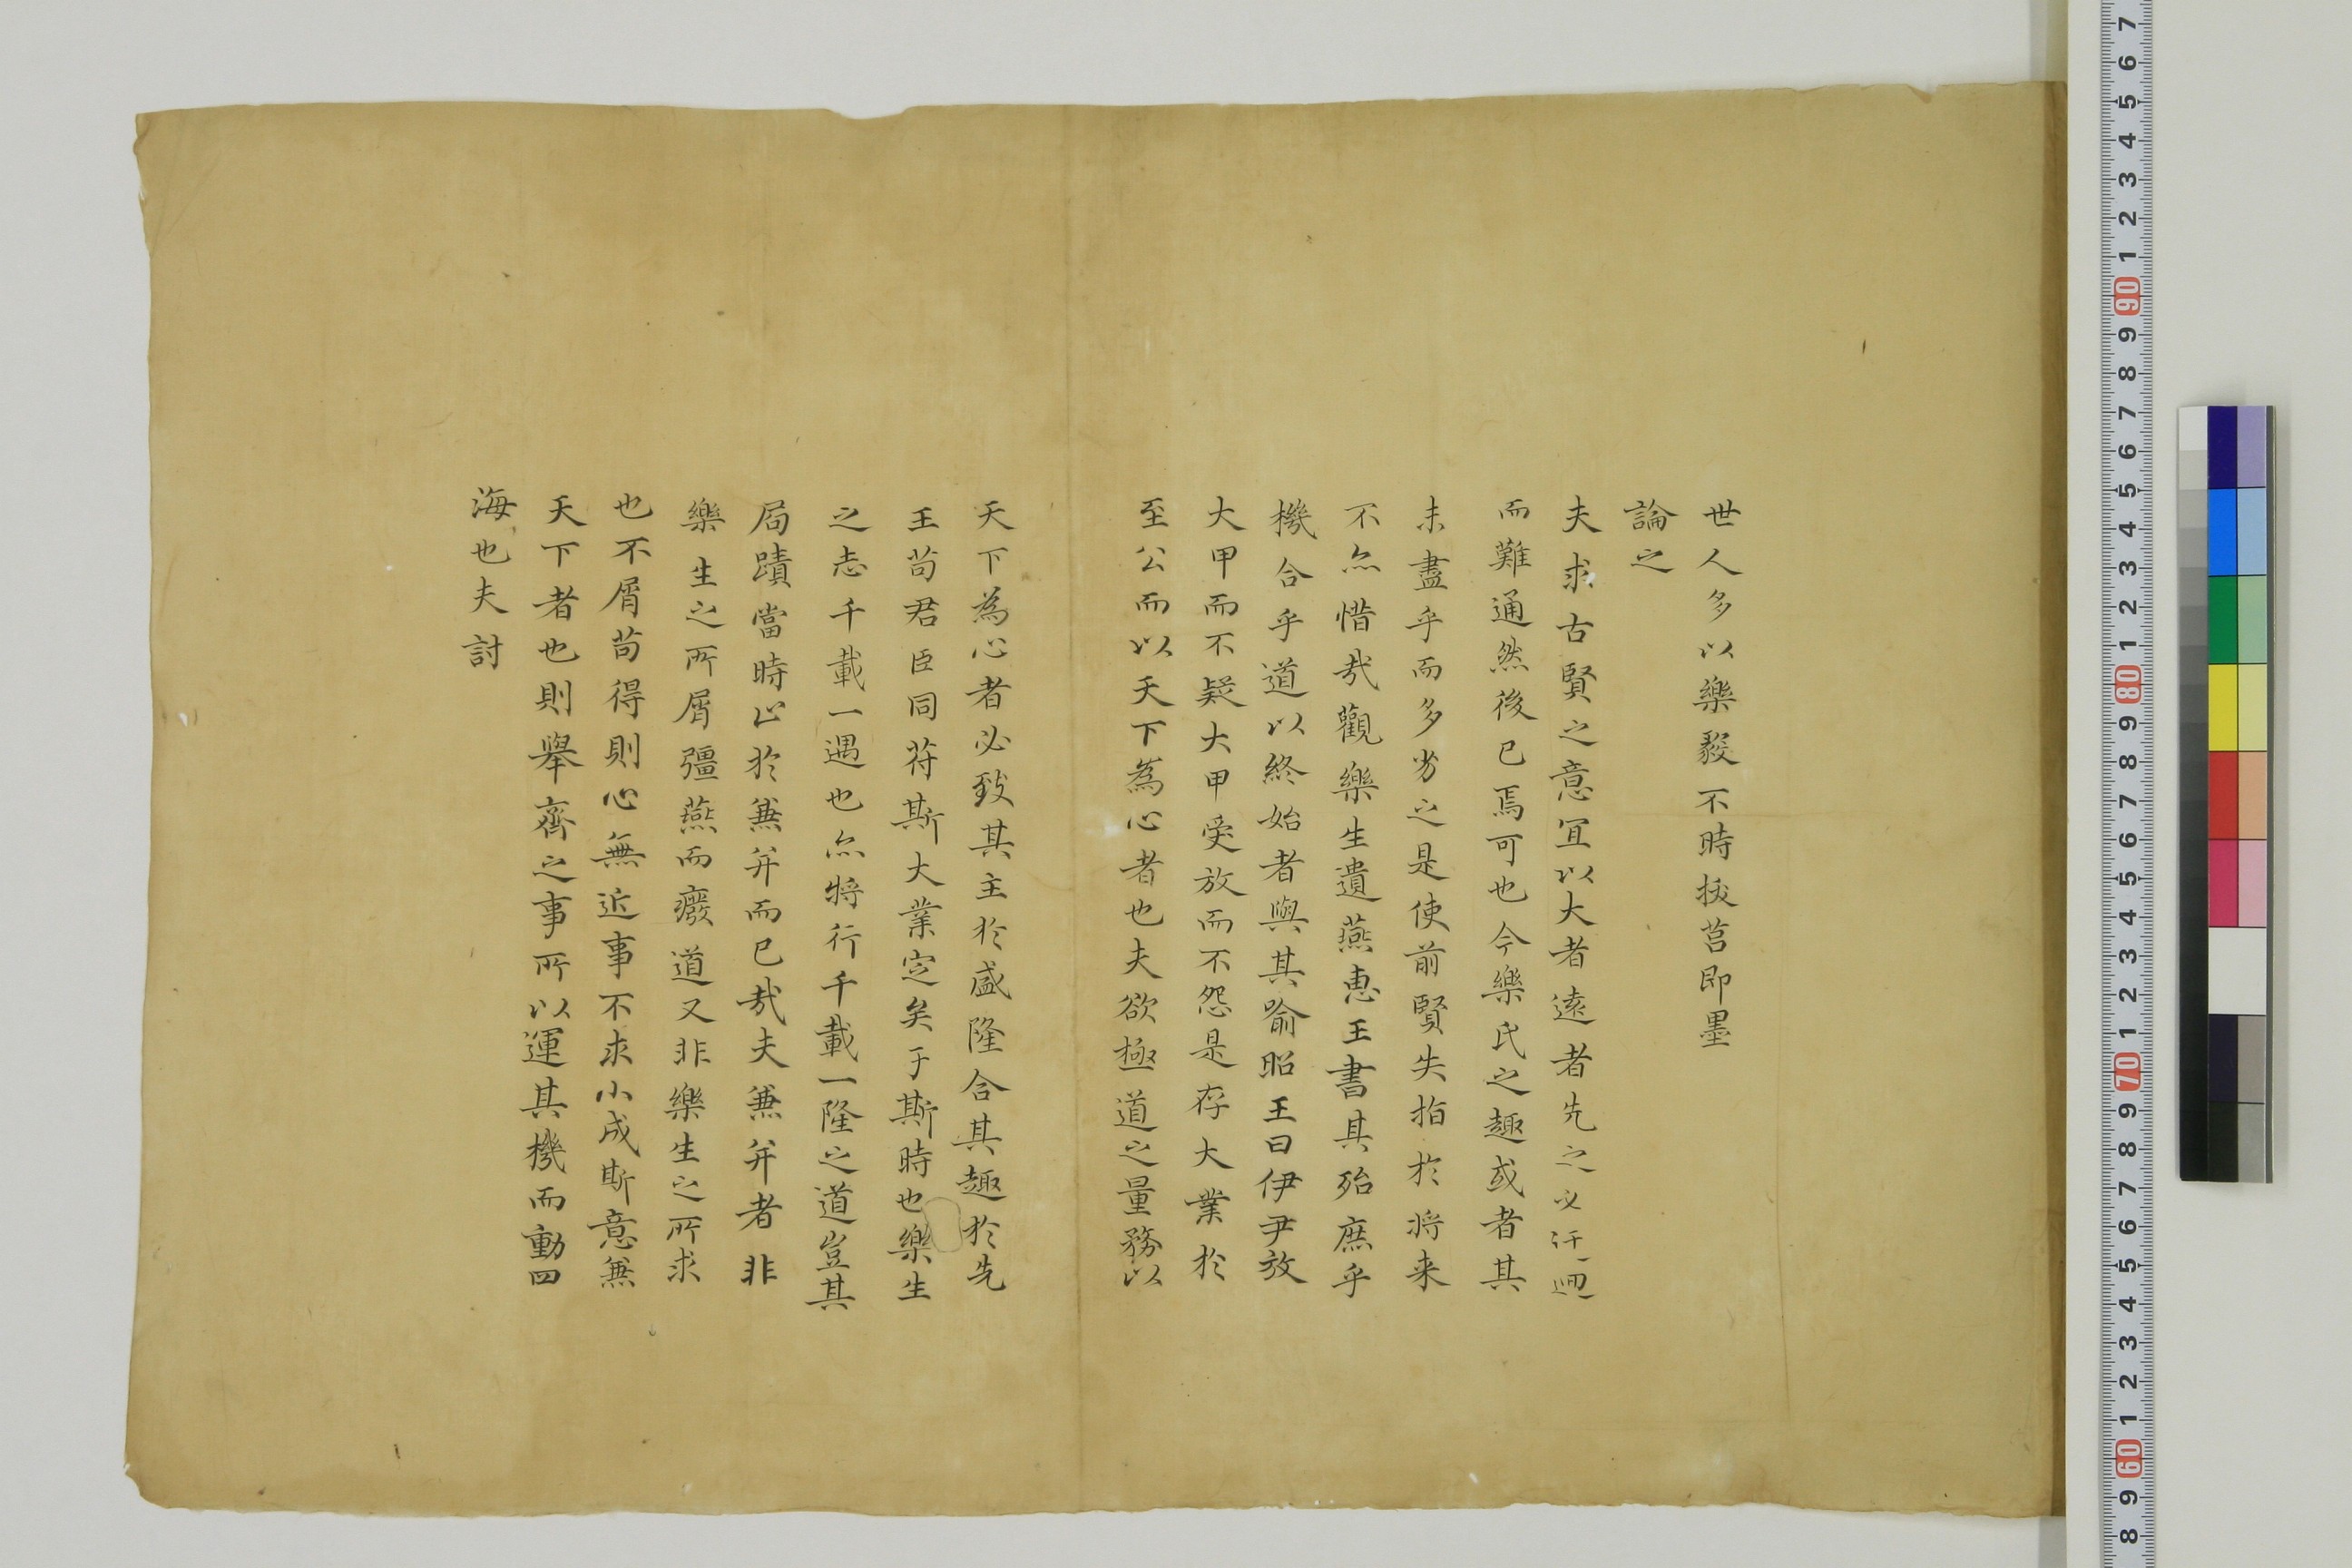 世人多以樂毅不時拔莒即墨
論之
夫求古賢之意宜以大者遠者先之必迂迴
而難通然後已焉可也今樂氏之趣或者其
未盡乎而多劣之是使前賢失指於将来
不亦惜哉觀樂生遺燕惠王書其殆庶乎
機合乎道以終始者與其喻昭王曰伊尹放
大甲而不疑大甲受放而不怨是存大業於
至公而以天下為心者也夫欲極道之量務以
天下為心者必致其主於盛隆合其趣於先
王苟君臣同符斯大業定矣于斯時也樂生
之志千載一遇也亦将行千載一隆之道豈其
局蹟當時止於兼并而已哉夫兼并者非
樂生之所屑彊燕而廢道又非樂生之所求
也不屑苟得則心無近事不求小成斯意兼
天下者也則舉齊之事所以運其機而動四
海也夫討
7 6 5 4 3 2 1 90 9 8 7 6 5 4 3 2 1 80 9 8 7 6 5 4 3 2 1 70 9 8 7 6 5 4 3 2 1 60 9 8